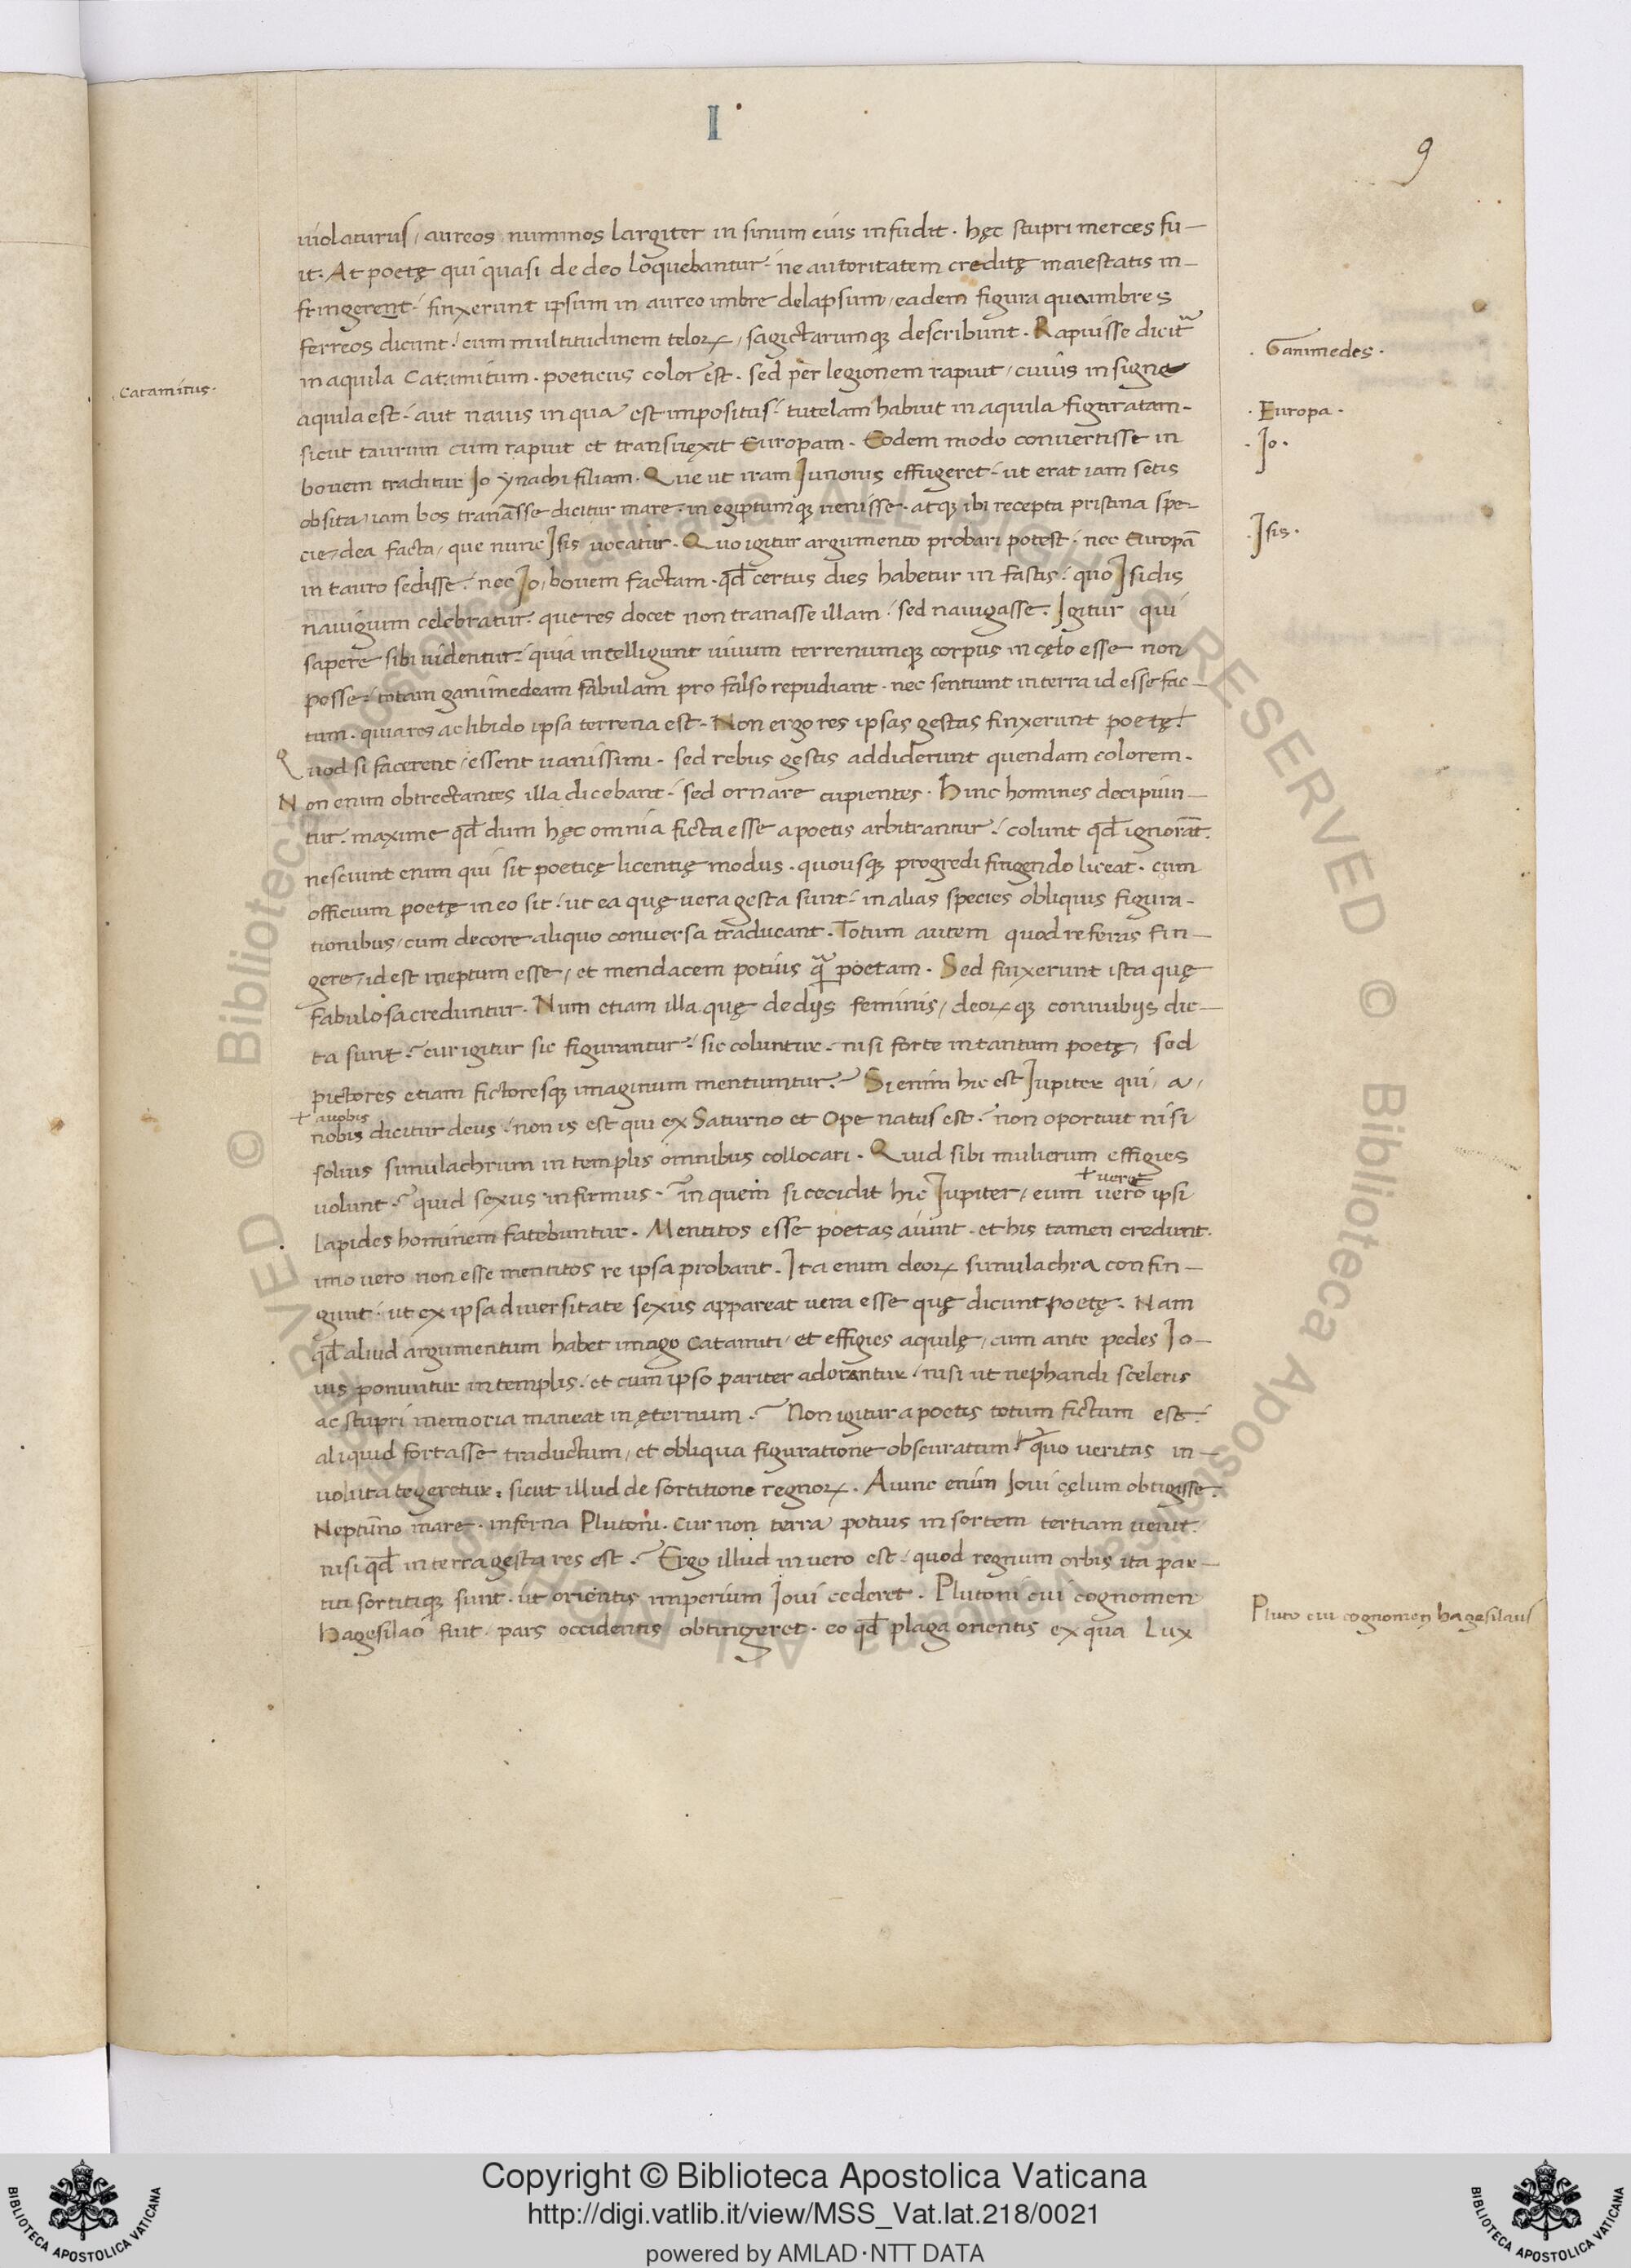 I
9
uiolaturus, aureos nummos largiter in sinum eius infudit. hęc stupri merces fu-
it. At poetę qui quasi de deo loquebantur. ne autoritatem creditę maiestatis in-
fringerent. finxerunt ipsum in aureo imbre delapsum, eadem figura qua imbres
ferreos dicunt. cum multitudinem teloꝝ, sagictarumqꝫ describunt. Rapuisse dicit᷑
Ganimedes.
in aquila Catamitum. poeticus color est. sed per legionem rapuit, cuius insigne
Catamitus.
aquila est. aut nauis in qua est impositus. tutelam habuit in aquila figuratam.
Europa.
sicut taurum cum rapuit et transuexit Europam. Eodem modo conuertisse in
Io.
bouem traditur Io ynachi filiam. Que ut iram Iunonis effugeret. ut erat iam setis
obsita, iam bos tranasse dicitur mare. in egiptumqꝫ uenisse. atqꝫ ibi recepta pristina spe-
cie, dea facta, que nunc Isis uocatur. Quo igitur argumento probari potest. nec Europā
Isis.
in tauro sedisse. nec Io, bouem factam. qđ certus dies habetur in fastis. quo Isidis
nauigium celebratur. que res docet non tranasse illam. sed nauigasse. Igitur qui
sapere sibi uidentur. quia intelligunt uiuum terrenumqꝫ corpus in cęlo esse non
posse. totam ganimedeam fabulam pro falso repudiant. nec sentiunt in terra id esse fac-
tum. quia res ac libido ipsa terrena est. Non ergo res ipsas gestas finxerunt poetę.
Quod si facerent, essent uanissimi. sed rebus gestis addiderunt quendam colorem.
Non enim obtrectantes illa dicebant. sed ornare cupientes. Hinc homines decipiun-
tur. maxime qđ dum hęc omnia ficta esse a poetis arbitrantur. colunt qđ ignorāt.
nesciunt enim qui sit poeticę licentię modus. quousqꝫ progredi fingendo liceat. cum
officium poetę in eo sit. ut ea quę uera gesta sunt. in alias species obliquis figura-
tionibus, cum decore aliquo conuersa traducant. Totum autem quod referas fin-
gere, id est ineptum esse, et mendacem potius quā poetam. Sed finxerunt ista quę
fabulosa creduntur. Num etiam illa quę de dijs feminis, deoꝝqꝫ connubijs dic-
ta sunt. cur igitur sic figurantur. sic coluntur. nisi forte in tantum poetę, sed
pictores etiam fictoresqꝫ imaginum mentiuntur. Si enim hic est Iupiter qui, a,
+ auobis
nobis dicitur deus. non is est qui ex Saturno et Ope natus est. non oportuit nisi
solius simulachrum in templis omnibus collocari. Quid sibi mulierum effigies
uolunt. quid sexus infirmus. in quem si cecidit hic Iupiter, eum uero ipsi
lapides hominem fatebuntur. Mentitos esse poetas aiunt. et his tamen credunt.
imo uero non esse mentitos re ipsa probant. Ita enim deoꝝ simulachra confin-
gunt. ut ex ipsa diuersitate sexus appareat uera esse quę dicunt poetę. Nam
qđ aliud argumentum habet imago Catamiti, et effigies aquilę, cum ante pedes Io-
uis ponuntur in templis. et cum ipso pariter adorantur, nisi ut nephandi sceleris
ac stupri memoria maneat in ęternum. Non igitur a poetis totum fictum est.
aliquid fortasse traductum, et obliqua figuratione obscuratum. quo ueritas in-
uoluta tegeretur. sicut illud de sortitione regnoꝝ. Aiunc enim Ioui cęlum obtigisse.
Neptunno mare. inferna Plutoni. Cur non terra potius in sortem tertiam uenit.
nisi qđ in terra gesta res est. Ergo illud in uero est. quod regnum orbis ita par-
titi sortitiqꝫ sunt. ut orientis imperium Ioui cederet. Plutoni cui cognomen
Hagesilao fuit. pars occidentis obtingeret. eo qđ plaga orientis ex qua Lux
Pluto cui cognomen hagesilaus
Copyright © Biblioteca Apostolica Vaticana
http://digi.vatlib.it/view/MSS_Vat.lat.218/0021
powered by AMLAD·NTT DATA
BIBLIOTECA APOSTOLICA VATICANA
BIBLIOTECA APOSTOLICA VATICANA